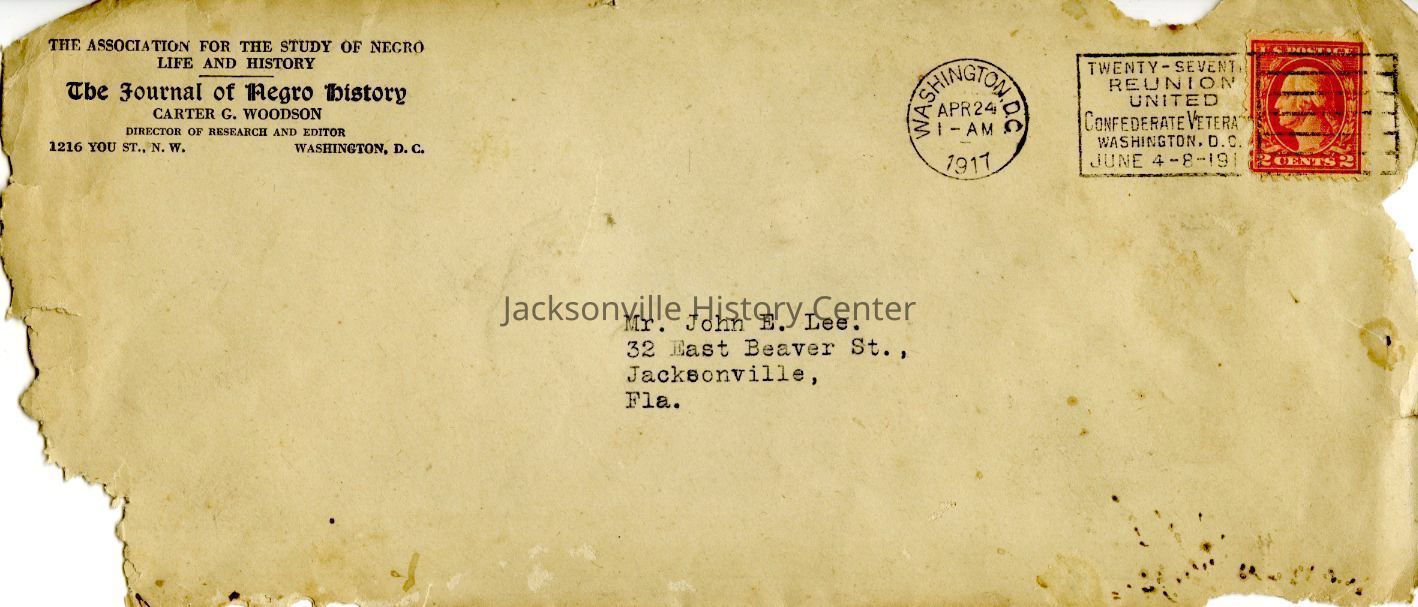 THE ASSOCIATION FOR THE STUDY OF NEGRO
LIFE AND HISTORY
The Journal of Negro History
CARTER G. WOODSON
DIRECTOR OF RESEARCH AND EDITOR
1216 YOU ST., N. W. WASHINGTON, D. C.
WASHINGTON, D.C.
APR 24
1-AM
1917
TWENTY-SEVENT
REUNION
UNITED
CONFEDERATE VETERA
WASHINGTON, D.C.
JUNE 4-8-191
U.S. POSTAGE
2 CENTS 2
Jacksonville History Center
Mr. John E. Lee.
32 East Beaver St.,
Jacksonville,
Fla.